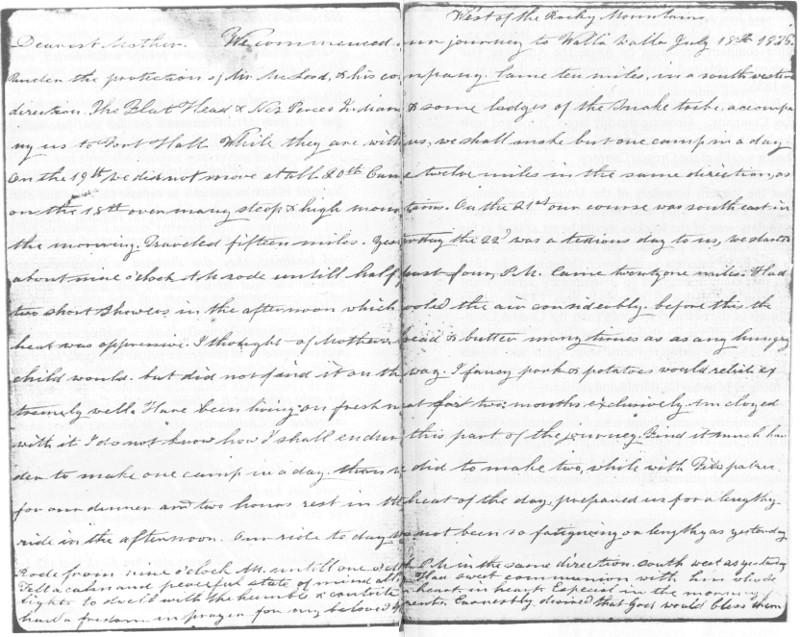 West of the Rocky Mountains
Dearest Mother. We commenced our journey to Walla Walla July 18th 1836.
under the protection of Mr McLeod, & his company. Came ten miles, in a south western
direction. The Flat Head & Nez Perces Indians & some lodges of the Snake tribe accompa
ny us to Fort Hall While they are with us, we shall make but one camp in a day.
On the 19th we did not move at all. 20th Came twelve miles in the same direction, as
on the 18th over many steep & high mountains. On the 21st our course was south east in
the morning. Traveled fifteen miles. Yesterday the 22d was a tedious day to us, we started
about nine o'clock A.M. rode untill half past four, P.M. Came twenty one miles. Had
two short showers in the afternoon which cooled the air considerably. before this the
heat was oppressive. I thought of Mothers bread & butter many times as as any hungry
child would. but did not find it on the way. I fancy pork & potatoes would relish ex
tremely well. Have been living on fresh meat for two months exclusively. Am cloyed
with it I do not know how I shall endure this part of the journey. Find it much har
der to make one camp in a day. than we did to make two, while with Fitzpatric
for our dinner and two hours rest in the heat of the day, prepared us for a lengthy
ride in the afternoon. Our ride to day has not been so fatiguing or lengthy as yesterday
Rode from nine o'clock M. untill one o'clock P.M. in the same direction. south west as yesterday
Felt a calm and peaceful state of mind all day Had sweet communion with him who de
lights to dwell with the humble & contrite in heart. Especial in the morning
had a freedom in prayer for my beloved Parents. Earnestly desired that God would bless them